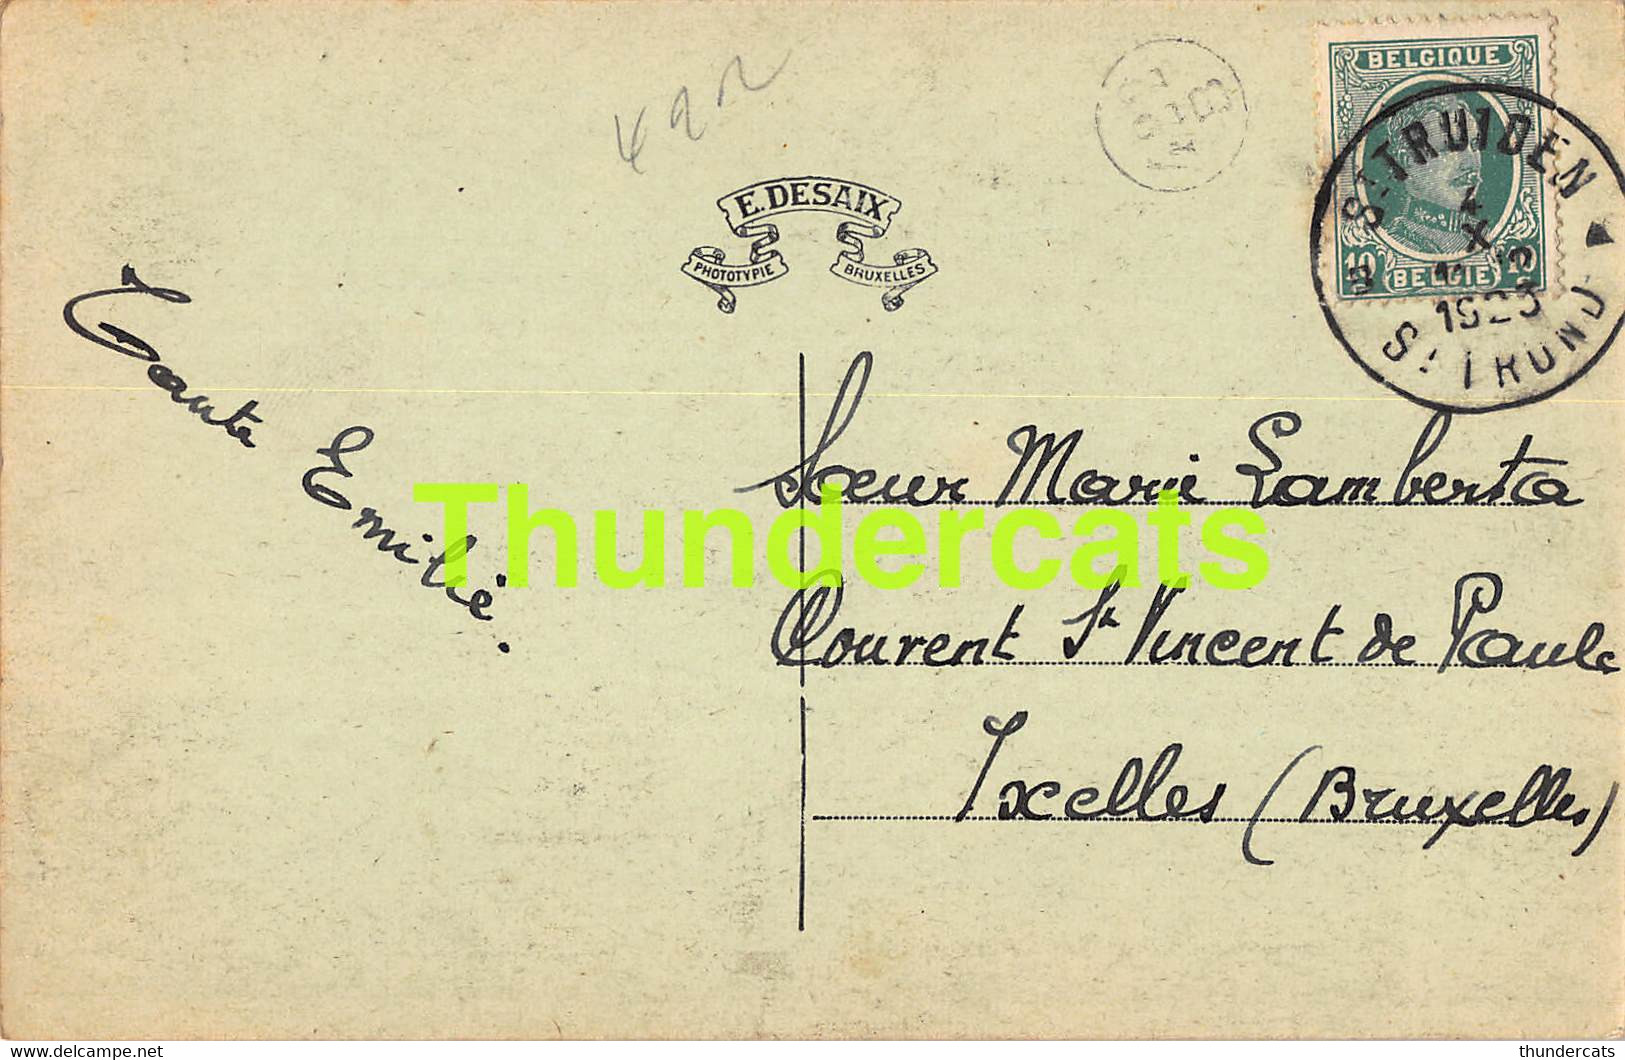 422
E. DESAIX
PHOTOTYPIE
BRUXELLES
BELGIQUE
10
BELGIE
ST TRUIDEN
4
X
1923
ST TROND
Tante Emilie.
Soeur Marie Lamberta
Couvent St Vincent de Paule
Ixelles (Bruxelles)
Thundercats
www.delcampe.net
thundercats